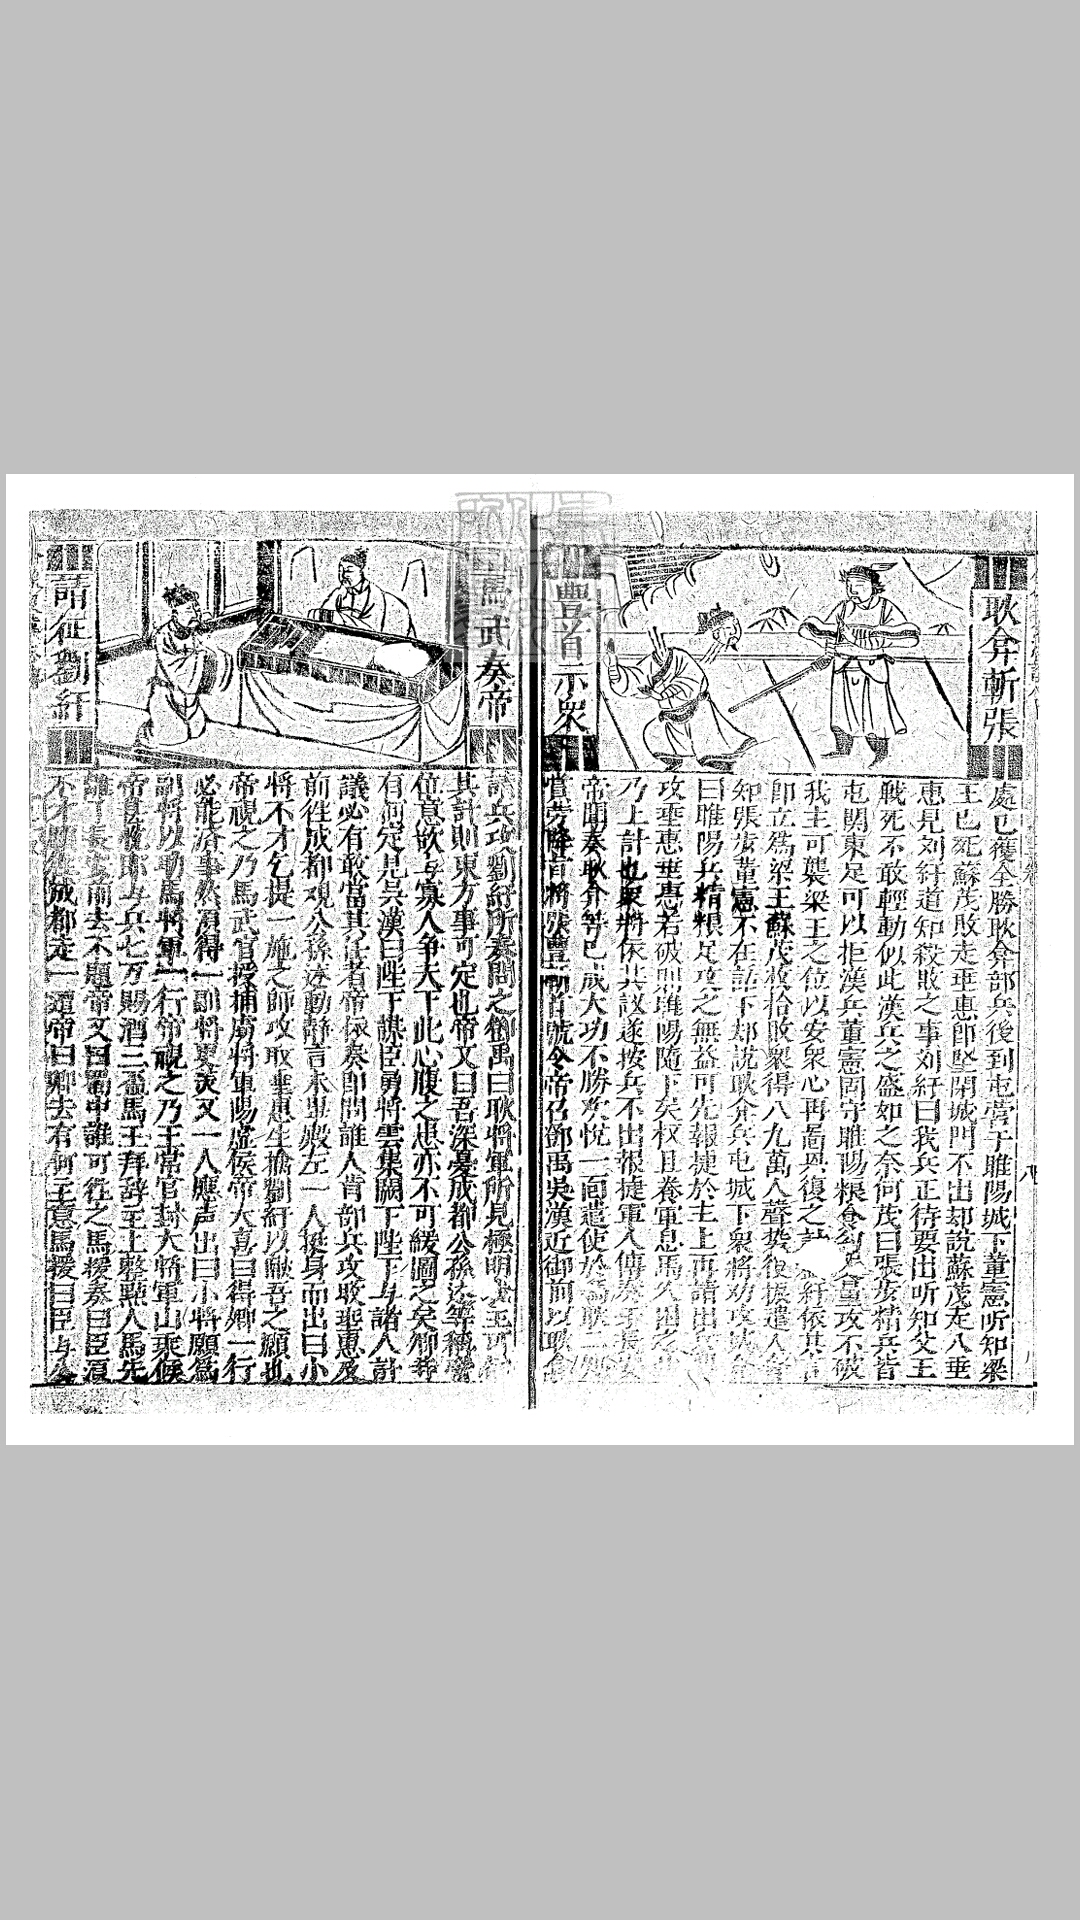 耿弇斬張
豐首示衆
處已獲全勝耿弇部兵後到屯営于睢陽城下董憲听知梁
王已死蘇茂敗走垂惠即堅閉城門不出却說蘇茂走八垂
惠見刘紆道知殺敗之事刘紆曰我兵正待要出听知父王
戰死不敢輕動似此漢兵之盛如之奈何茂曰張步精兵皆
屯関東足可以拒漢兵董憲固守睢陽粮食 量攻不破
我主可襲梁王之位以安衆心再啚興復之計 紆依其言
即立為梁王蘇茂收拾敗衆得八九萬人聲势復振遣人
知張步董憲不在話下却說耿弇兵屯城下衆將劝攻
曰睢陽兵精粮足攻之無益可先報捷於主上再請出
攻垂惠垂惠若破則睢陽隨下矣权且养軍息馬久困之
乃上計也衆將依其議遂按兵不出報捷軍人傳奏
帝聞奏耿弇等已成大功不勝欢悅一面遣使於
賞労降旨將張豐斬首號令帝召鄧禹吳漢近御前以耿弇
馬武奏帝
請征劉紆
請兵攻劉紆所奏問之鄧禹曰耿將軍所見極明 主可
其計則東方事可定也帝又曰吾深憂成都公孫述等稱
位意欲与寡人争天下此心腹之患亦不可緩圖之矣卿等
有何定見吳漢曰陛下謀臣勇將雲集闕下陛下与諸人計
議必有敢當其任者帝依奏即問誰人肯部兵攻取垂惠及
前往成都观公孫述動静言未畢殿左一人挺身而出曰小
將不才乞提一旅之師攻取垂惠生擒劉紆以献吾之願也
帝視之乃馬武官授捕虜将軍陽虛侯帝大喜曰得卿一行
必能済事然須得一副将更羙又一人應声出曰小将願為
副将以助馬將軍一行帝視之乃王常官封大將軍山桑侯
帝 即与兵七万賜酒三盃馬王拜辞至上整點人馬先
誰可長安前去不題帝又曰蜀中誰可往之馬援奏曰臣
不才願往成都走一遭帝曰卿去有何主意馬援曰臣与公